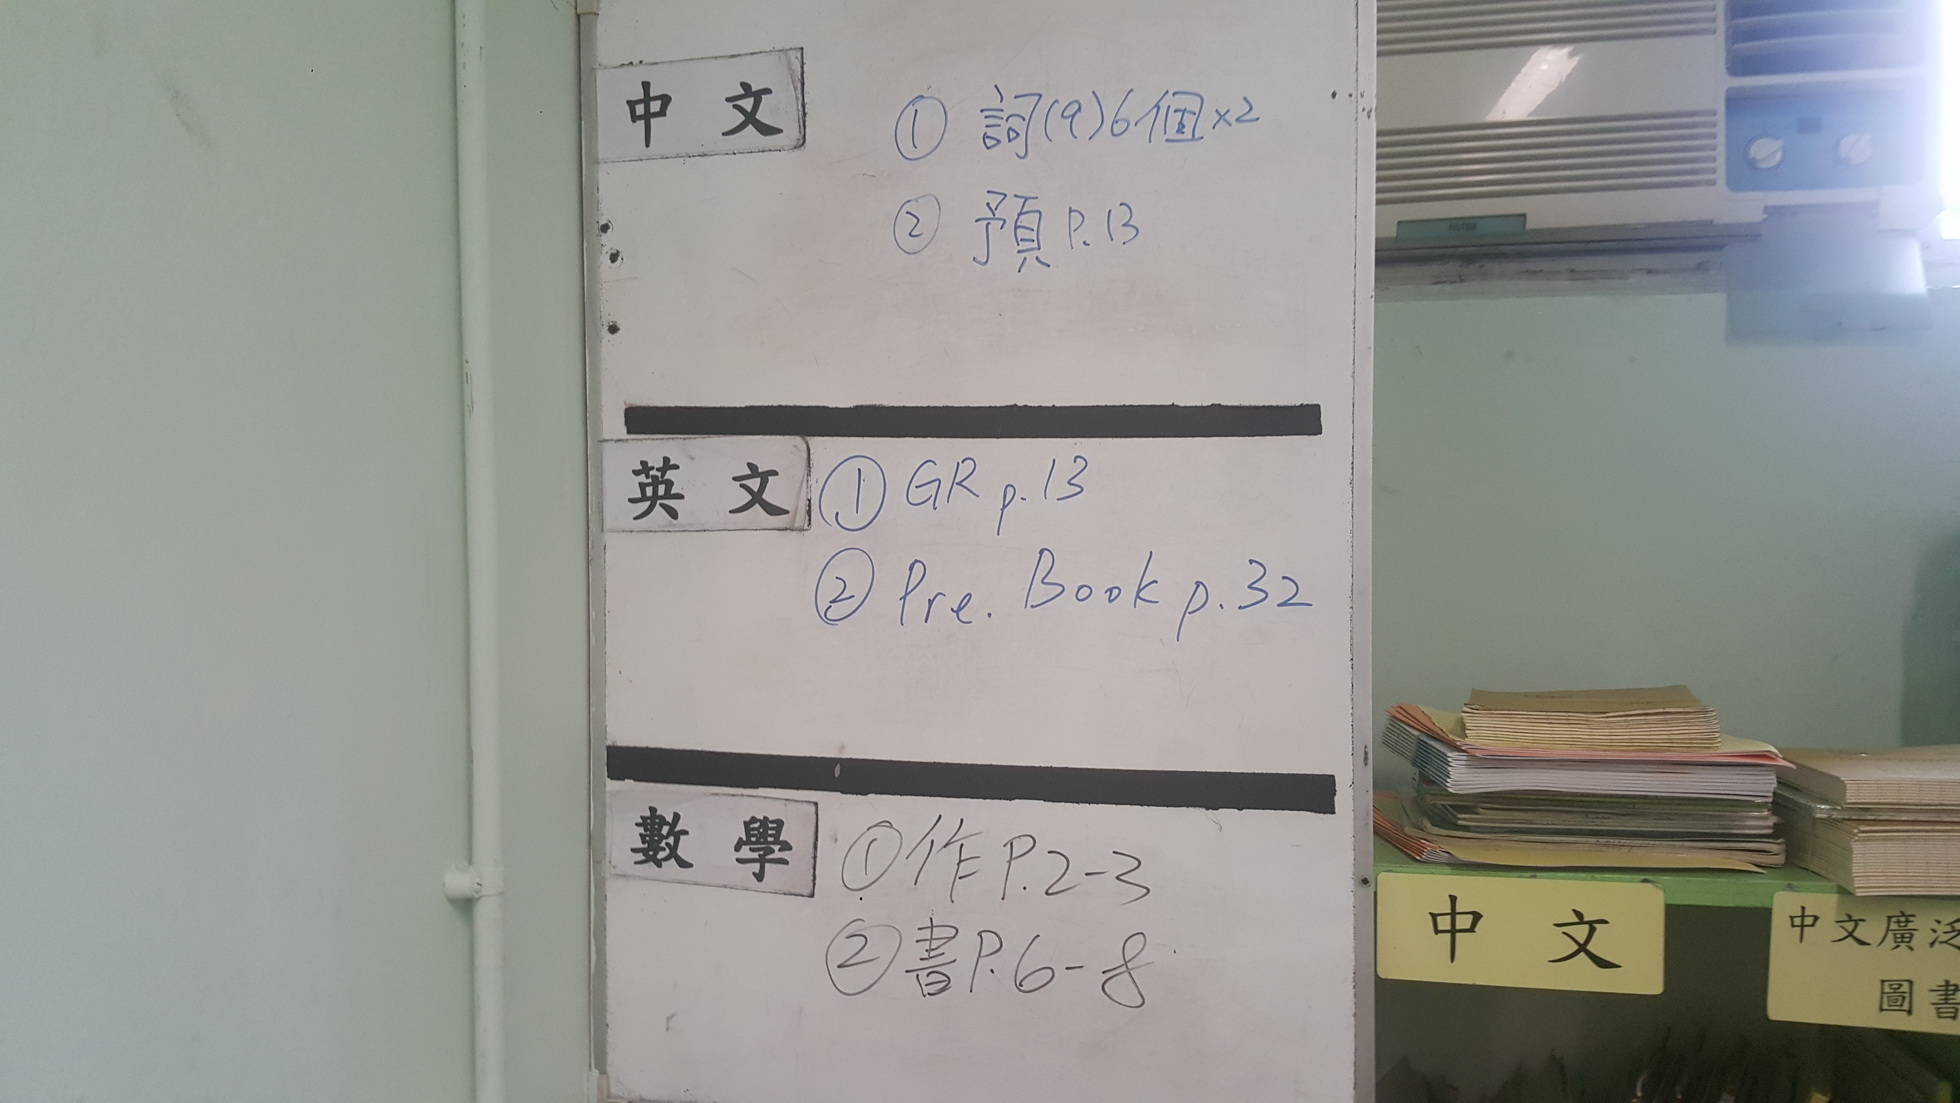 中文
① 詞(9)6個×2
② 預P.13
英文
① GR p.13
② Pre. Book p.32
數學
① 作P.2-3
② 書P.6-8
FILTER
中文
中文廣泛
圖書